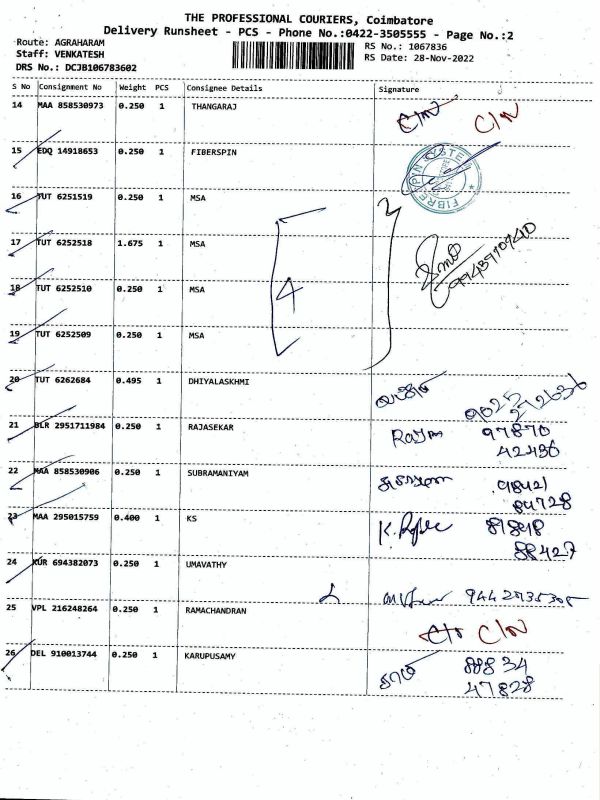 THE PROFESSIONAL COURIERS, Coimbatore
Delivery Runsheet - PCS - Phone No.:0422-3505555 - Page No.:2
Route: AGRAHARAM
Staff: VENKATESH
DRS No.: DCJB106783602
RS No.: 1067836
RS Date: 28-Nov-2022
S No Consignment No Weight PCS Consignee Details Signature
14 MAA 858530973 0.250 1 THANGARAJ C/N C/N
15 EDQ 14918653 0.250 1 FIBERSPIN
16 TUT 6251519 0.250 1 MSA
17 TUT 6252518 1.675 1 MSA
9943910940
18 TUT 6252510 0.250 1 MSA 4
19 TUT 6252509 0.250 1 MSA
20 TUT 6262684 0.495 1 DHIYALASKHMI
21 BLR 2951711984 0.250 1 RAJASEKAR 97870
42436
22 MAA 858530906 0.250 1 SUBRAMANIYAM 98421
84728
23 MAA 295015759 0.400 1 KS 81848
88427
24 KUR 694382073 0.250 1 UMAVATHY
25 VPL 216248264 0.250 1 RAMACHANDRAN C/N
26 DEL 910013744 0.250 1 KARUPUSAMY 88834
47828